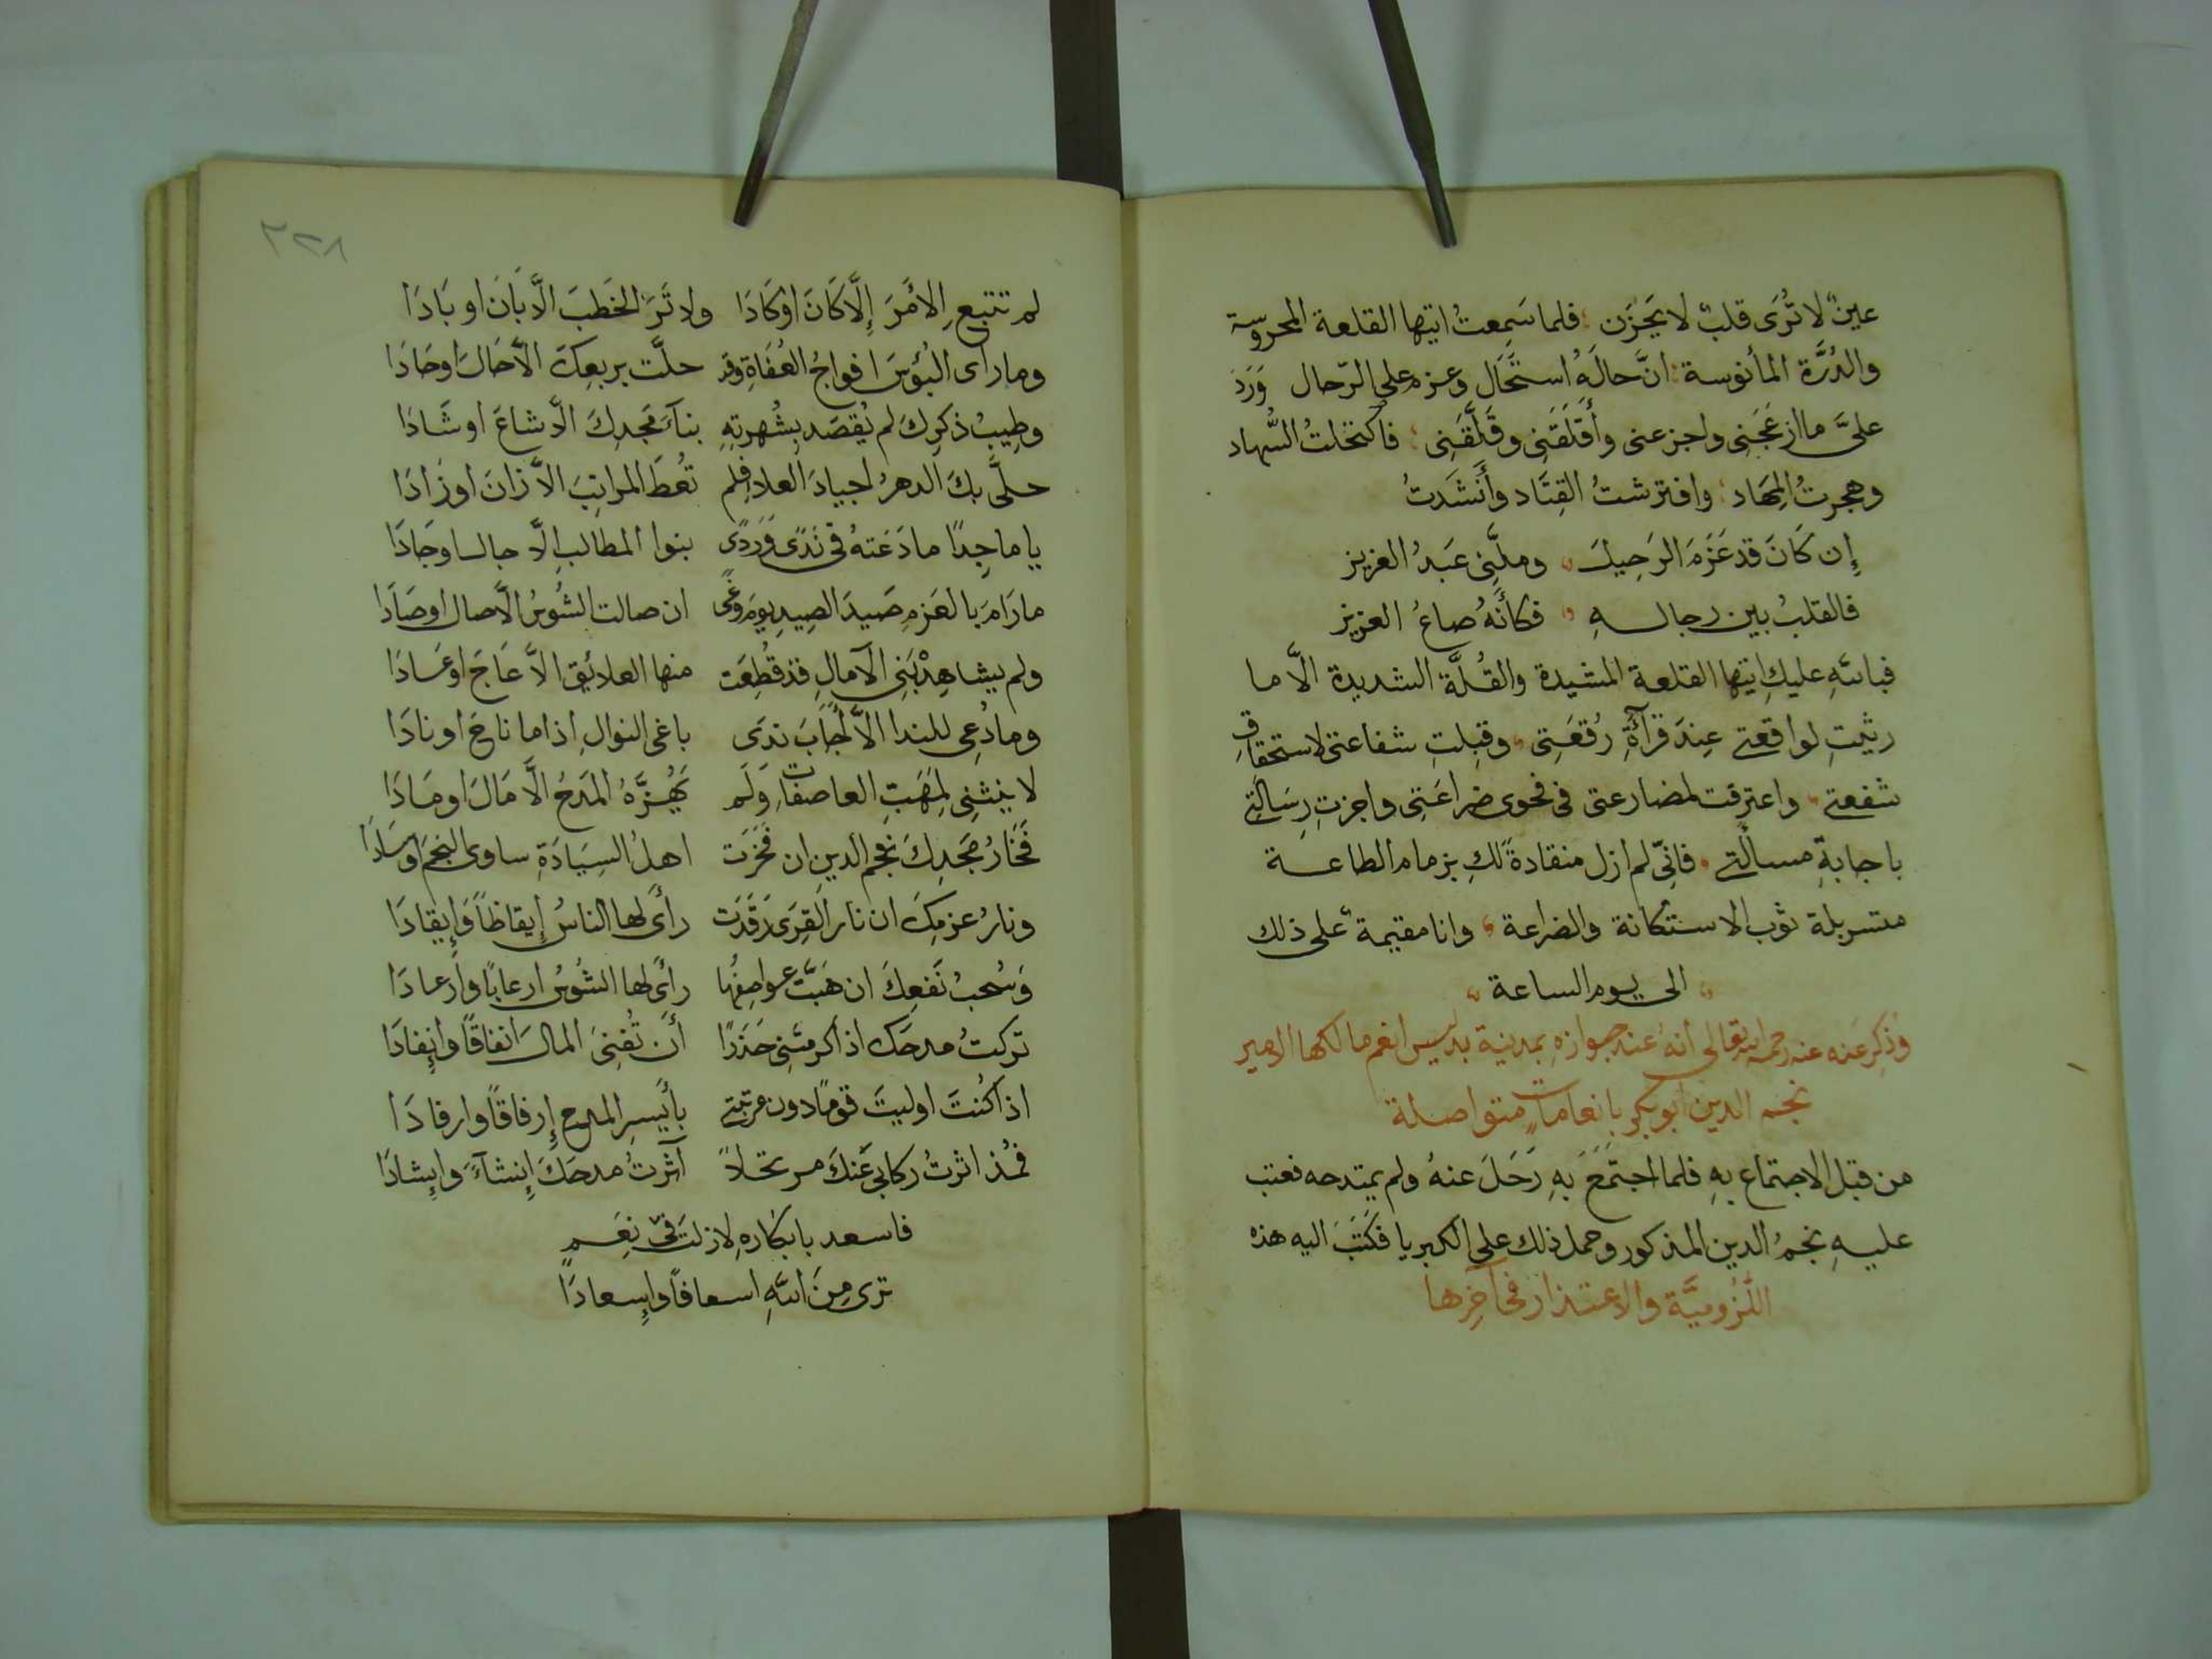 عينٌ لا تُرَى قلبٌ لا يَحْزَن ؛ فلما سَمِعتُ ايتها القلعة المحروسة
والدُرَّة المأنوسة ؛ انَّ حالَهُ استَحَال وعزم على الرّحال وَرَدَ
علىَّ ما ازعَجَنِى واجزعنى وأَقلَقَنِى وقَلَّقَنِى ؛ فاكتحلتُ السُّهاد
وهجرتُ المِهَاد ؛ وافترشتُ القِتَاد وأَنشَدتُ
إِن كَانَ قد عَزَمَ الرَحِيلَ وملَّنِى عَبدُ العزيز
فالقلبُ بين رحالهِ فكأنَّهُ صاعُ العزيز
فباللهِ عليكِ ايتها القلعة المشيدة والقُلَّة الشديدة الَّا ما
رثيتِ لواقعتى عِندَ قرآءَةِ رُقعَتِى وقبِلتِ شفاعتى لاستحقاقِ
شفعتى واعترفت لمضارعتى فى فحوى ضراعَتِى واجزتِ رِسَالَتِى
باجابةِ مسالَتِى فانّى لم ازل منقادةً لكِ بزمام الطاعة
متسربلة ثوب الاستكانة والضراعة وانا مقيمة على ذلك
الى يوم الساعة
وذُكِرَ عنه رحمه الله تعالى أنهُ عند جوازهِ بمدينة بدليس انعم مالكها الامير
نجم الدين ابو بكر بانعاماتٍ متواصلة
من قبل الاجتماع بهِ فلما اجتَمَعَ بهِ رَحَلَ عنهُ ولم يمتدحه فعتب
عليهِ نجمُ الدين المذكور وحمل ذلك على الكبريا فكَتَبَ اليه هذه
اللُّزُوميَّة والاعتذار فى آخِرها
٢٢٨
لم تتبعِ الأمَرَ إِلَّا كَانَ اوْ كَادَا ولا تَرَ الخَطبَ الَّا بَانَ او بَادَا
وما رأى البُؤسَ افواجُ العُفَاةِ وقد حلَّت بربعِكَ الَّا حَالَ او حَادَا
وطِيبُ ذكرِكَ لم يُقصَد بشُهرتِهِ بنآءَ مَجدِكَ الَّا شاعَ او شَادَا
حلَّى بكَ الدهرُ اجيادَ العلا فلم تُعطَ المراتِبَ الاَّ زانَ او زَادَا
يا ماجِدًا ما دَعَتهُ فى نَدًى وَرَدًى بنوا المطالبِ الَّا جالسا وجَادَا
ما رَامَ بالعَزمِ صَيدَ الصِيدِ يومَ وغًى ان صالت الشُوسُ الَّا صال او صَادَا
ولم يشاهِدْ بَنِى الآمالِ قد قُطِعَت منها العلائِق الاَّ عَاجَ او عَادَا
وما دُعِى للندا الاَّ أجَابَ نَدَى باغى النوالِ اذا ما ناحَ او نادَا
لا ينثنِى لِمَهَبِّ العاصفاتِ وَلَم يَهُزَّهُ المَدحُ الَّا مَالَ او مَادَا
فَخَارُ مَجدِكَ نجم الدينِ ان فَخَرَت اهلُ السِيَادَةِ ساوى النجمَ او سَادَا
ونارُ عزمِكَ ان نار القِرَى رَقَدَت رأى لها الناسُ إِيقاظًا وَإِيقادَا
وَسُحبُ نَفعِكَ ان هَبَّت عواصِفُها رأى لها الشُوسُ ارعابًا وارعادَا
تركتُ مدحَك اذ اكرمتَنِى حَذَرًا أن تُفنِىَ المالَ انفاقًا وإِنفادَا
اذا كُنتَ اوليتَ قومًا دون مرتبتى بأيسرِ المدح إِرفاقًا وارفادَا
فمُذ اثرتُ ركابى عَنكَ مرتحلاً آثرتُ مدحَكَ إِنشآءً وَإِنشادَا
فاسعد بابكارهِ لازلتَ فى نِعَمٍ
ترى مِنَ اللَّهِ اسعافًا وإِسعادَا